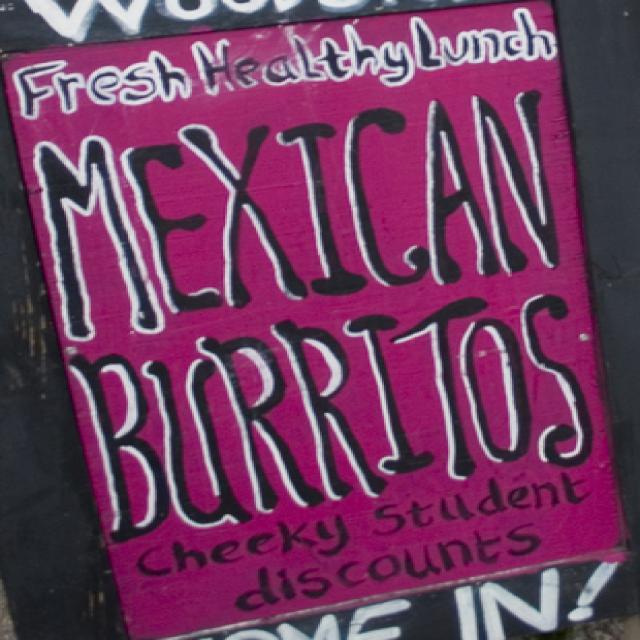 Fresh Healthy Lunch
MEXICAN
BURRITOS
Cheeky Student
discounts
IN!